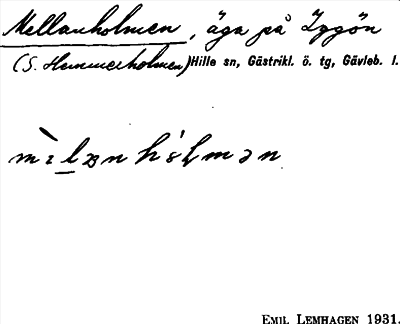 Mellanholmen, äga på Iggön
(S. Hummerholmen) Hille sn, Gästrikl. ö. tg, Gävleb. l.
EMIL LEMHAGEN 1931.